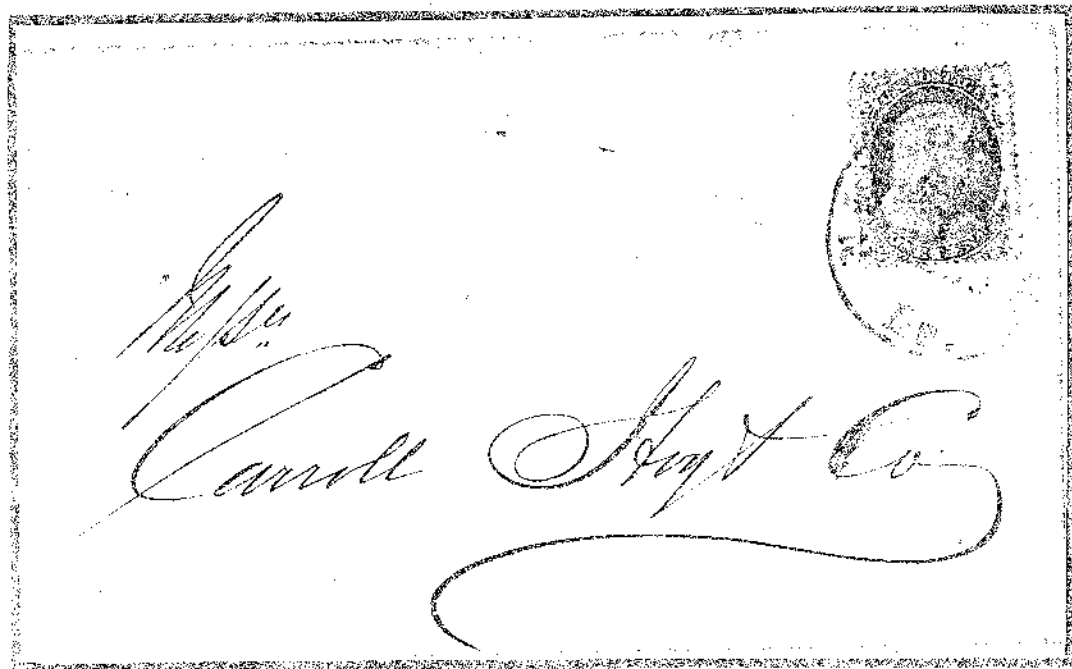 Messrs
Carroll Hoyt & Co.